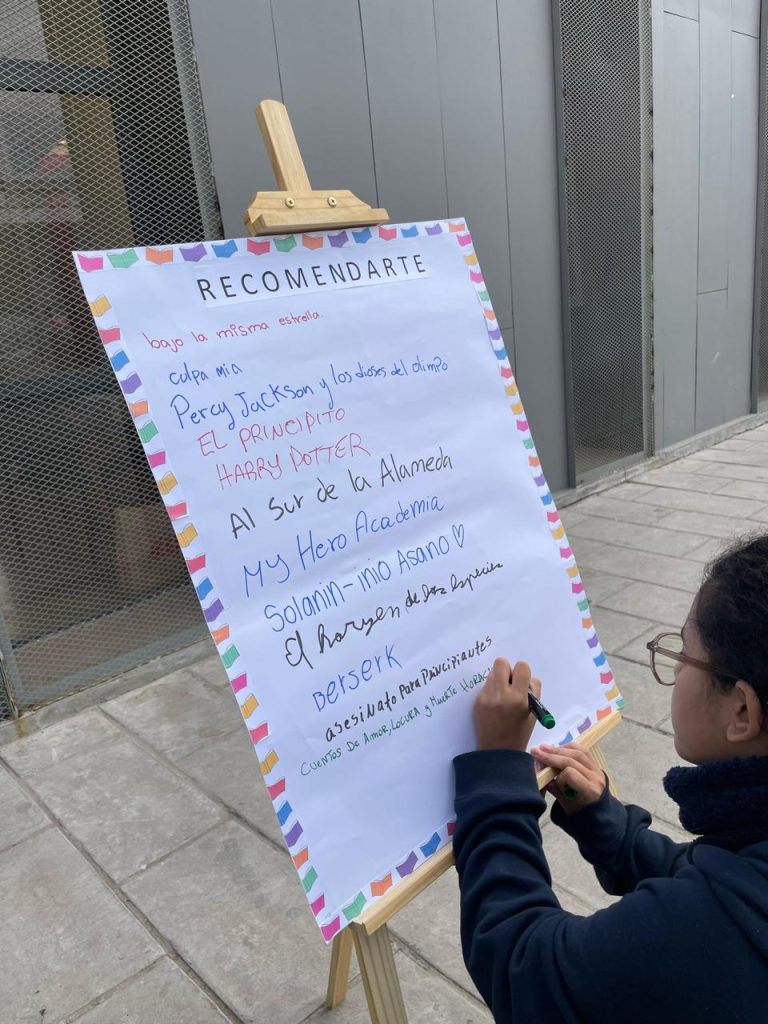 RECOMENDARTE
bajo la misma estrella.
culpa mia
Percy Jackson y los dioses del olimpo
EL PRINCIPITO
HARRY POTTER
Al Sur de la Alameda
My Hero Academia
Solanin-inio Asano ♡
El horigen de las especies
Berserk
asesinato para Principiantes
CUENTOS DE AMOR, LOCURA y MUERTE HORAC